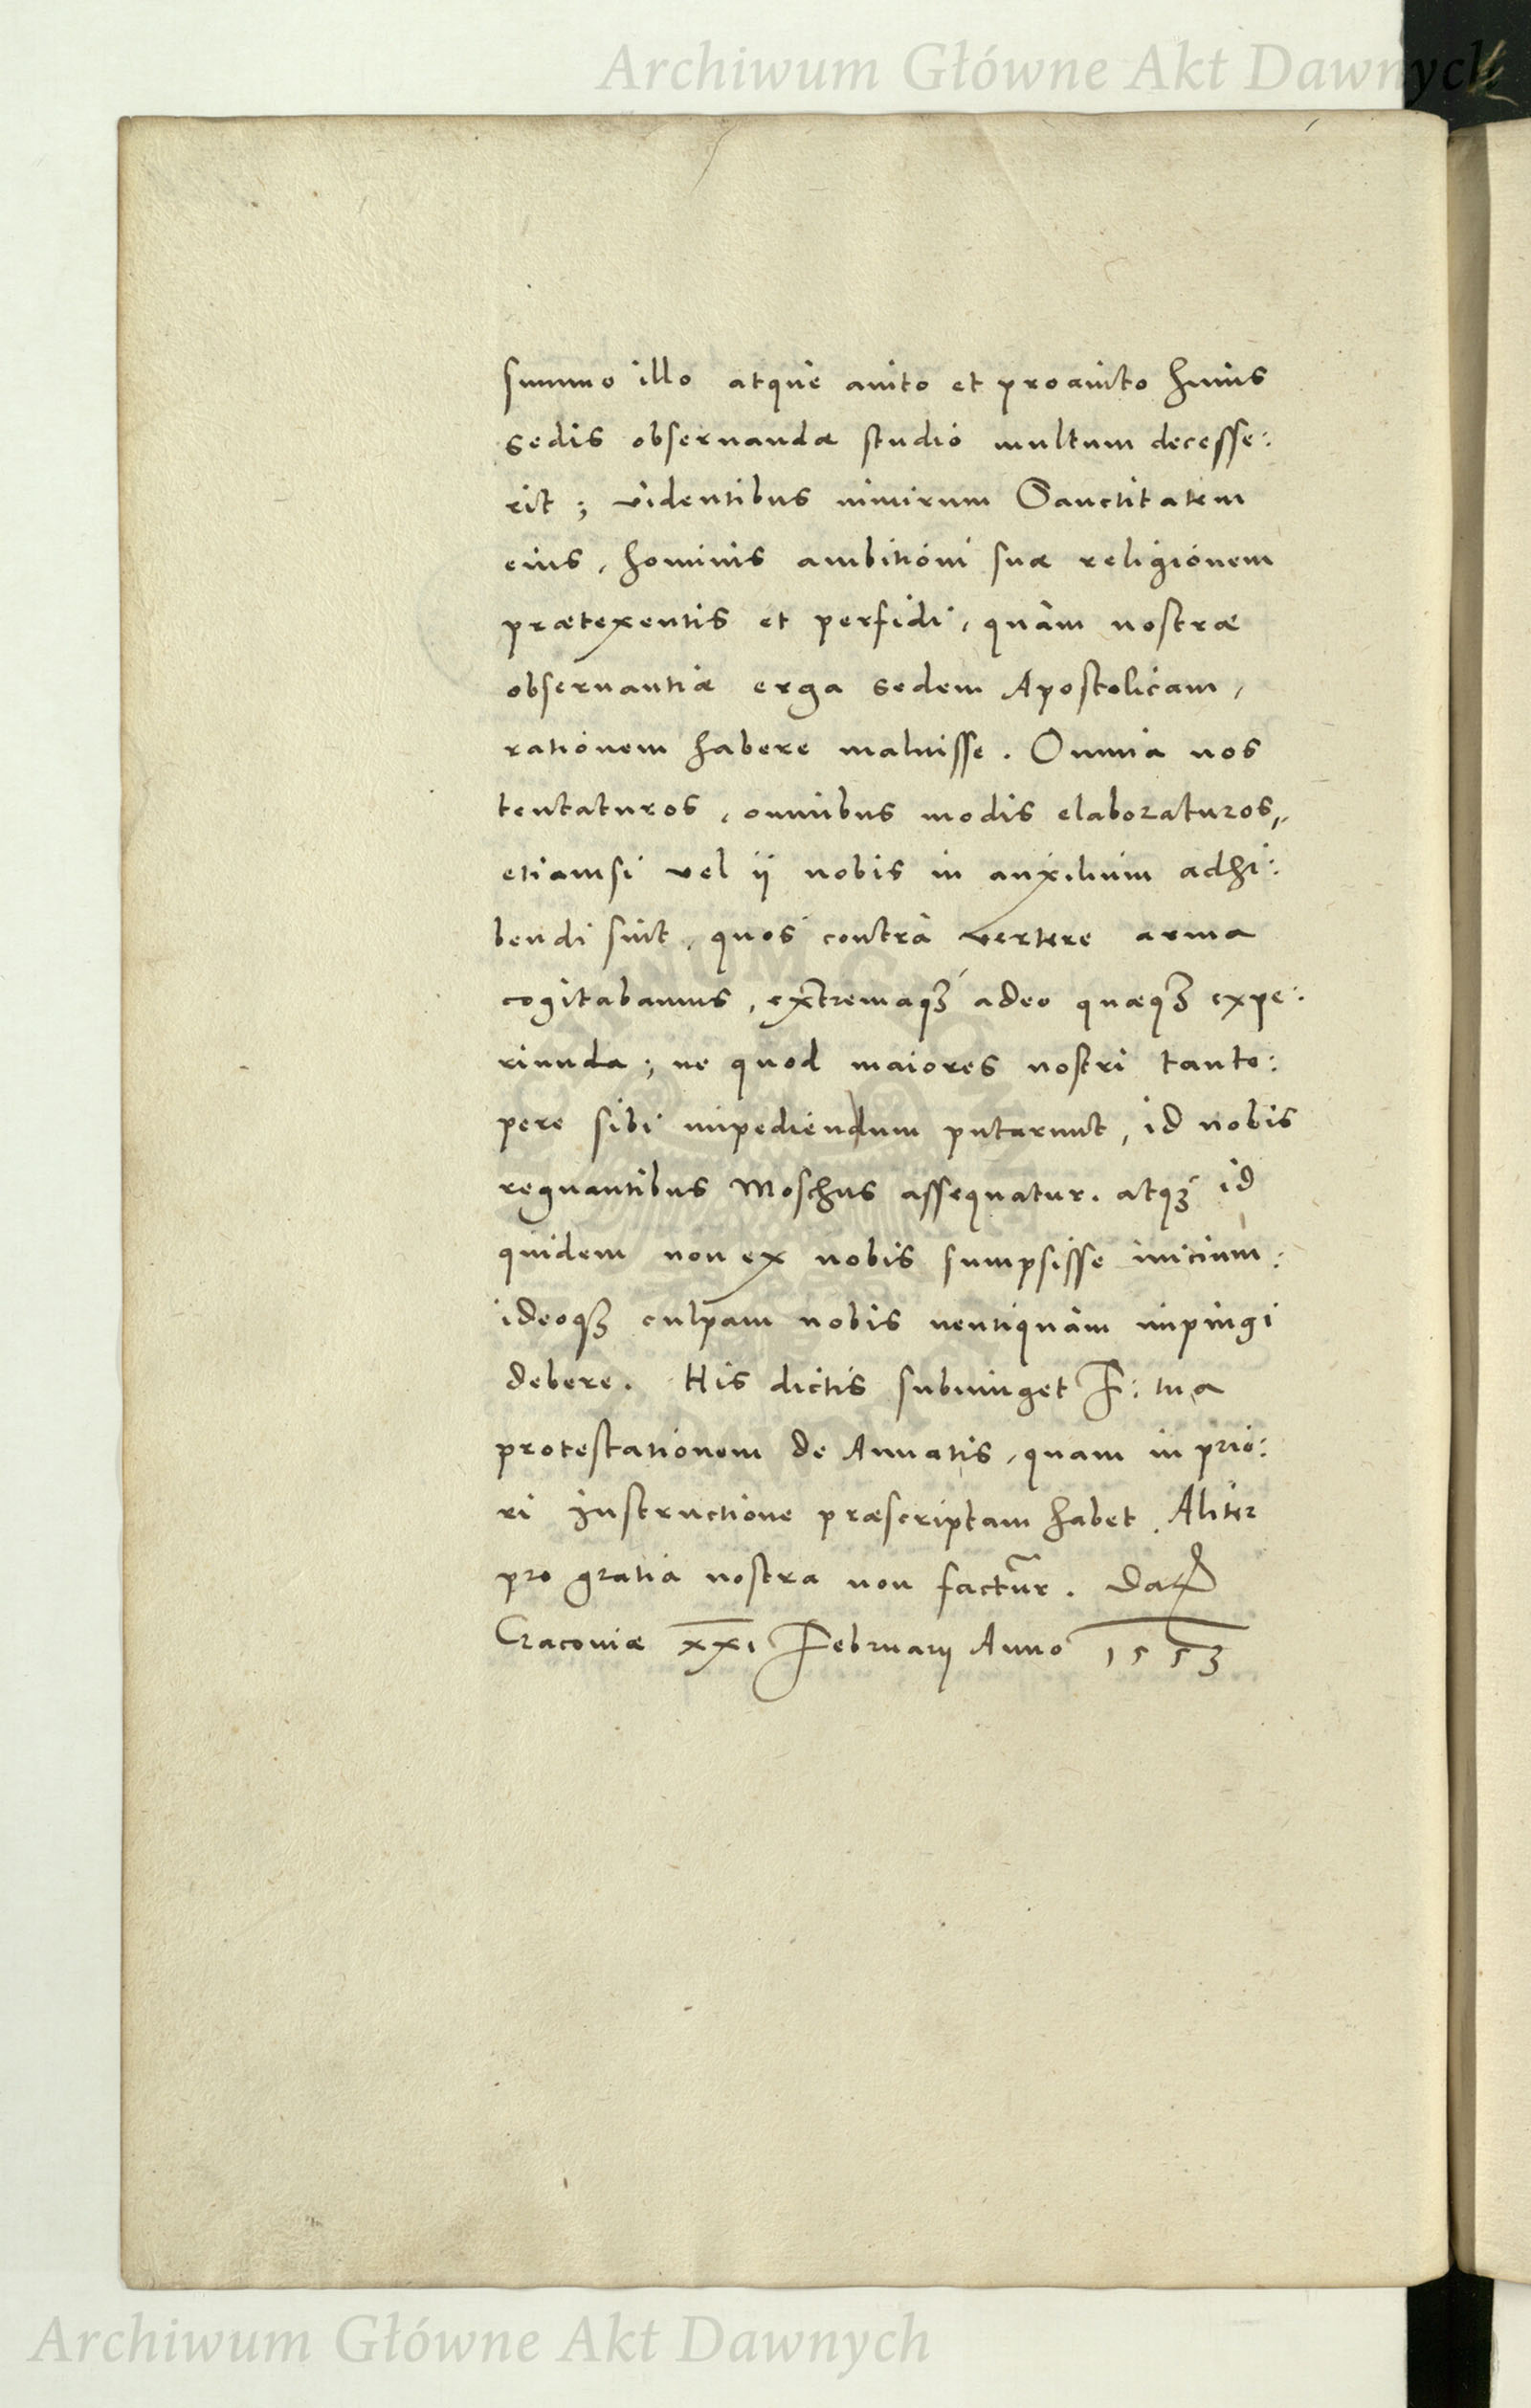 Archiwum Główne Akt Dawnych
summo illo atque auito et proauito huius
sedis obseruandæ studio multum decesse:
rit; videntibus nimirum Sanctitatem
eius, hominis ambitioni suæ religionem
prætexentis et perfidi, quàm nostræ
obseruantiæ erga sedem Apostolicam,
rationem habere maluisse. Omnia nos
tentaturos, omnibus modis elaboraturos,
etiamsi vel ij nobis in auxilium adhi:
bendi sint, quos contrà vertere arma
cogitabamus, extremaqꝫ adeo quæqꝫ expe:
riunda; ne quod maiores nostri tanto:
pere sibi impediendum putarunt, id nobis
regnantibus Moschus assequatur. atqꝫ id
quidem non ex nobis sumpsisse inicium:
ideoqꝫ culpam nobis neutiquàm impingi
debere. His dictis subiunget F: tua
protestationem de Annatis, quam in prio:
ri Instructione præscriptam habet. Aliter
pro gratia nostra non factur̃. Dat
Cracouiæ XXI Februarij Anno 1553
Archiwum Główne Akt Dawnych